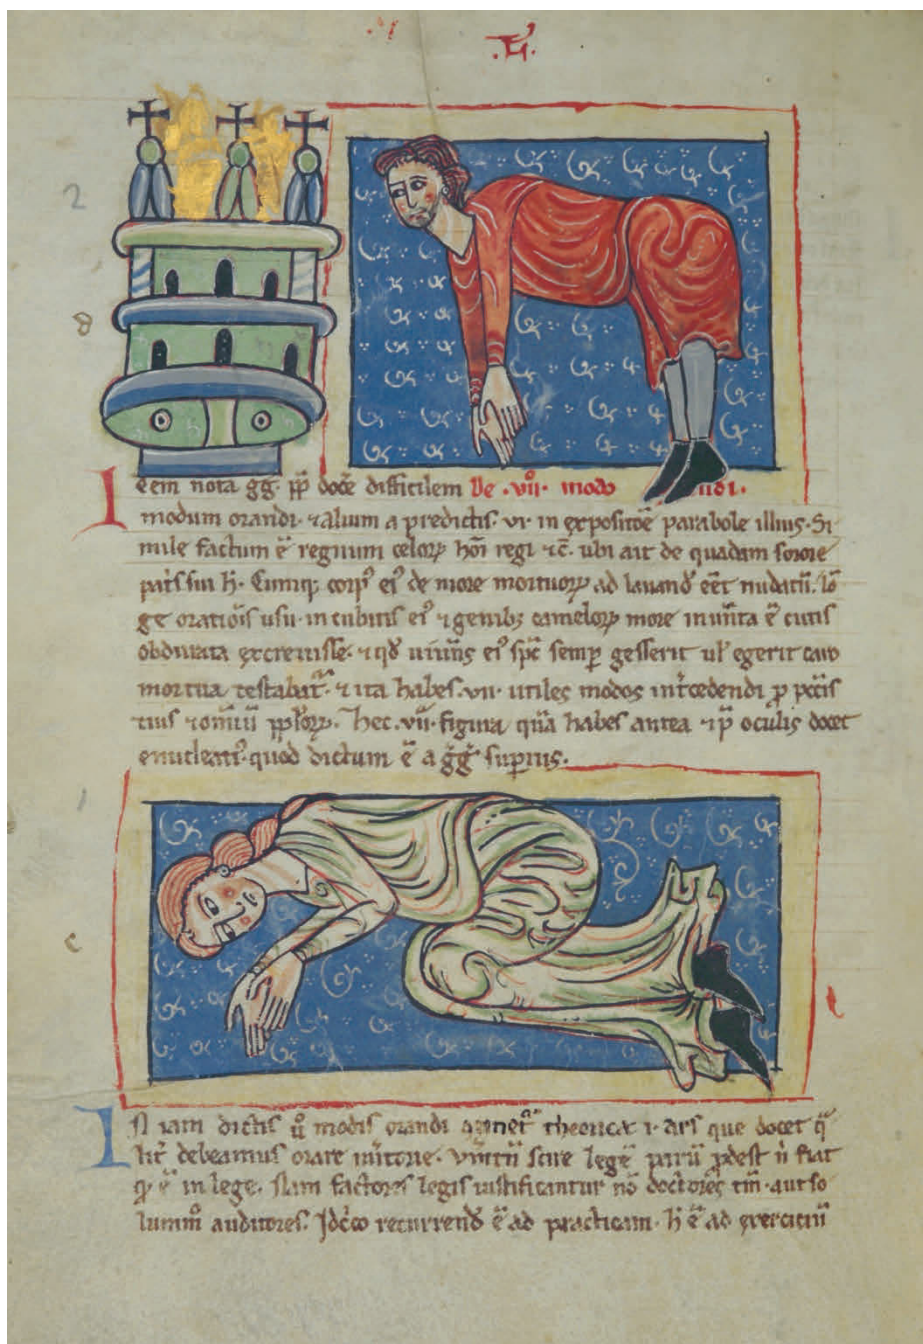 Item nota gg̃. pp̃ docẽ difficilem De .vii. modo
modum orandi. ⁊ alium a predictis. vi. in expositõe parabole illius. Si
mile factum ẽ regnum celoꝝ hoĩ regi ⁊c̃. ubi ait de quadam sorore
pat̃s sui h̃. Cumq; corp᷒ ei᷒ de more mortuoꝝ ad lauand̃ eẽt nudatũ. lõ
ge oratiõis usu. in cubitis ei᷒ ⁊ genib; cameloꝝ more inuñta ẽ cutis
obdurata excreuisse. ⁊ qd̃ uiuẽs ei᷒ sp̃c semp̃ gesserit ul̃ egerit caro
mortua testabat̃. ⁊ ita habes .vii. utiles modos int̃cedendi p̃ pcc̃is
tuis ⁊ om̃iũ pp̃loꝝ. hec .vii. figura quã habes antea ⁊ p̃ oculis docet
enucleati᷒. quod dictum ẽ a gg̃ superius.
In iam dictis uº modis orandi theorica .i. ars que docet q̃
lit̃ debeamus orare Vm̃tñ scire legẽ parũ p̃dest ñ fiat
q̃ ẽ in lege. Nam factores legis iustificantur nõ doctores tm̃. aut so
lummº auditores. Idc̃co recurrend̃ ẽ ad practicam. h̃ ẽ ad exerciciũ